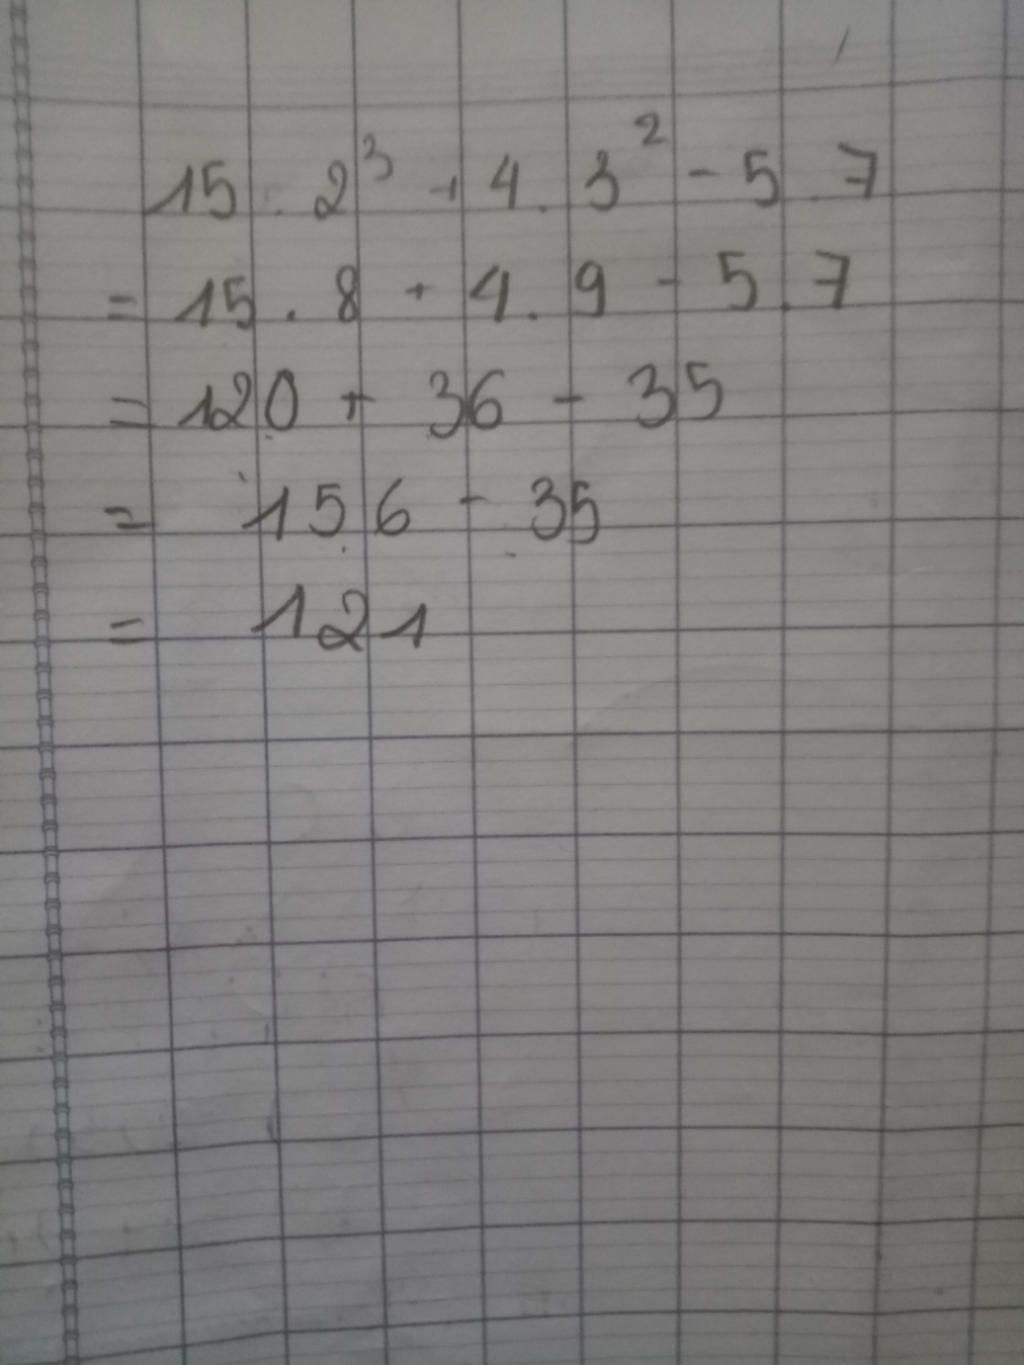 15 . 2³ + 4 . 3² - 5 . 7
= 15 . 8 + 4 . 9 - 5 . 7
= 120 + 36 - 35
= 156 - 35
= 121